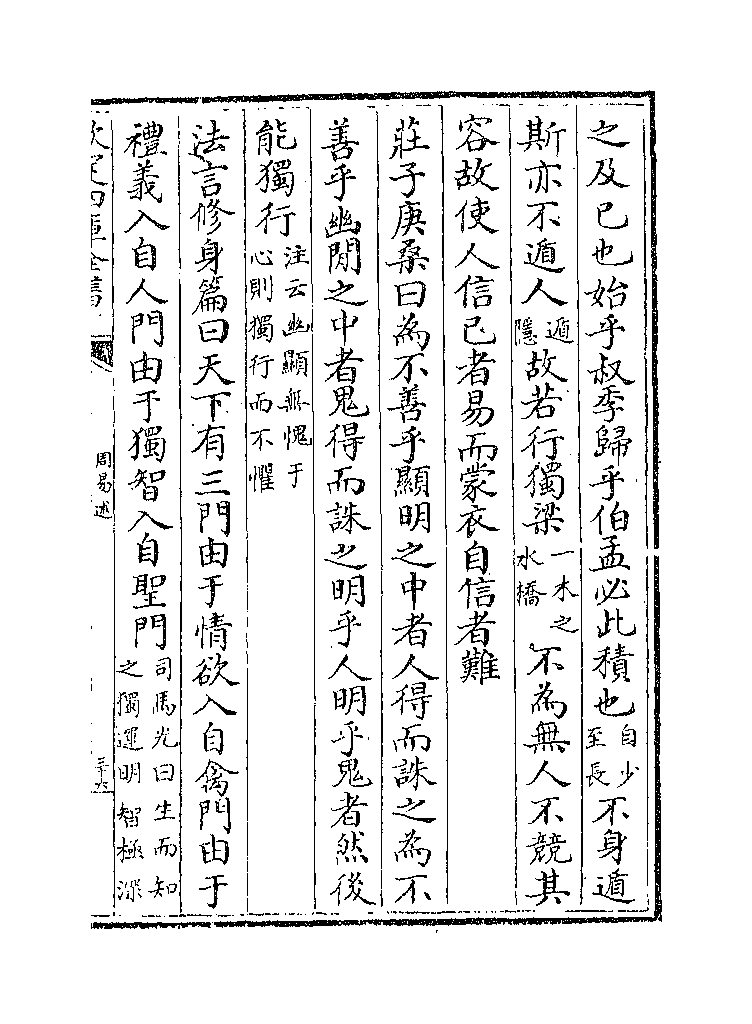 之及已也始乎叔季歸乎伯孟必此積也自少至長不身遁
斯亦不遁人遁隱故若行獨梁一木之水橋不為無人不競其
容故使人信已者易而蒙衣自信者難
莊子庚桑曰為不善乎顯明之中者人得而誅之為不
善乎幽閒之中者鬼得而誅之明乎人明乎鬼者然後
能獨行注云幽顯無愧于心則獨行而不懼
法言修身篇曰天下有三門由于情欲入自禽門由于
禮義入自人門由于獨智入自聖門司馬光曰生而知之獨運明智極深
欽定四庫全書
周易述
三十六